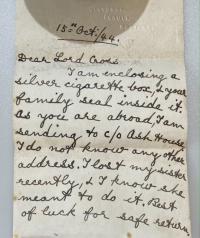 15th Oct./44.
Dear Lord Cross
I am enclosing a
silver cigarette box, & your
family seal inside it.
As you are abroad, I am
sending to c/o Ash House
I do not know any other
address. I lost my sister
recently, & I know she
meant to do it. Best
of luck for safe return.